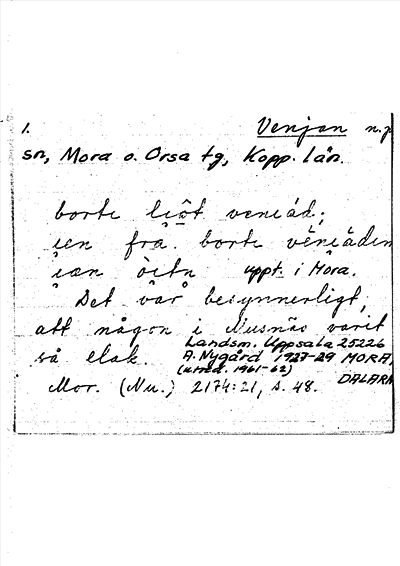 1. Venjan n.
sn, Mora o. Orsa tg, Kopp. län.
borte venıád;
ıen frå borte vènıáden
òitn uppt. i Mora.
Det var besynnerligt,
att någon i Nusnäs varit
så elak. Landsm. Uppsala 25226
A. Nygård 1927-29 MORA,
(utred. 1961-62)
Mor. (Nu.) 2174:21, s. 48. DALARN